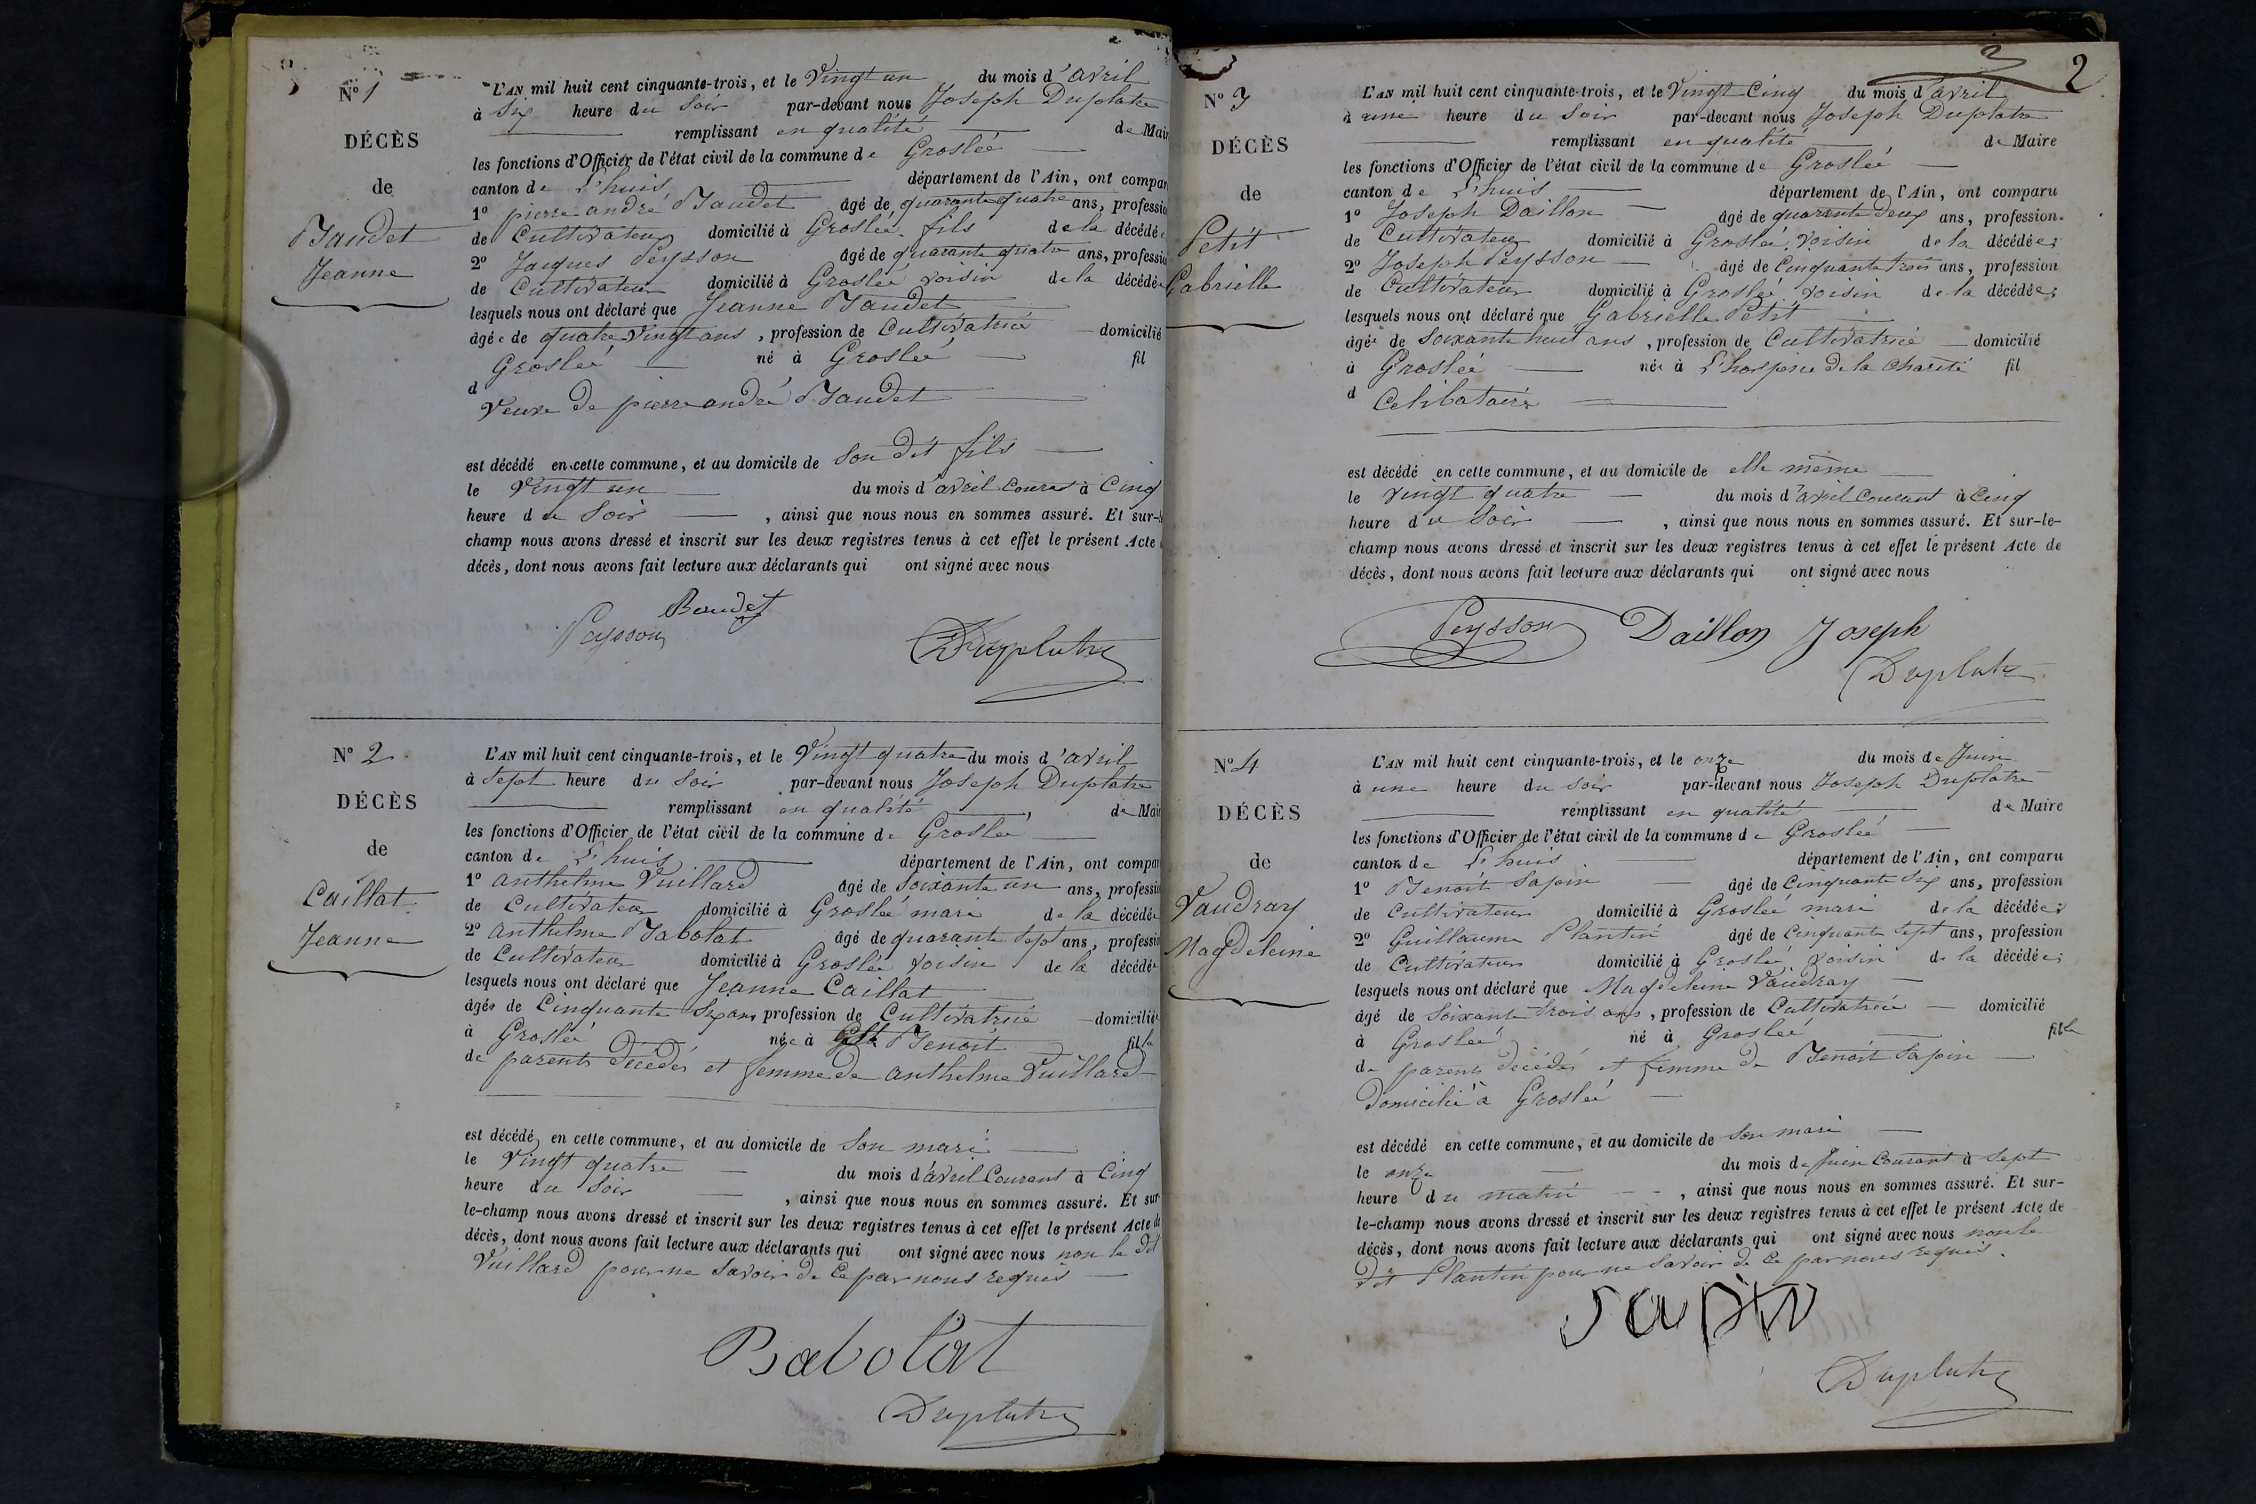 N° 1
DÉCÈS
de
Baudet
Jeanne
L'AN mil huit cent cinquante-trois, et le Vingt un du mois d'avril
à Six heure du Soir par-devant nous Joseph Duplatre
remplissant en qualité de Mair
les fonctions d'Officier de l'état civil de la commune de Groslée
canton de L'huis département de l'Ain, ont compar
1° pierre andré Baudet âgé de quarante quatre ans, professio
de Cultivateur domicilié à Groslée fils de la décédée
2° Jacques Peysson âgé de quarante quatre ans, professio
de Cultivateur domicilié à Groslée voisin de la décédée
lesquels nous ont déclaré que Jeanne Baudet
âgée de quatre Vingt ans, profession de Cultivatrice domicilié
Groslée né à Groslée fil
d
Veuve de pierre andré Baudet
est décédé en cette commune, et au domicile de Son dit fils
le Vingt un du mois d'avril Courant à Cinq
heure du Soir, ainsi que nous nous en sommes assuré. Et sur-l
champ nous avons dressé et inscrit sur les deux registres tenus à cet effet le présent Acte
décès, dont nous avons fait lecture aux déclarants qui ont signé avec nous
Baudet
Peysson
Duplatre
N° 2
DÉCÈS
de
Caillat
Jeanne
L'AN mil huit cent cinquante-trois, et le Vingt quatre du mois d'avril
à Sept heure du Soir par-devant nous Joseph Duplatre
remplissant en qualité de Mair
les fonctions d'Officier de l'état civil de la commune de Groslée
canton de L'huis département de l'Ain, ont compar
1° anthelme Vuillard âgé de Soixante un ans, professio
de Cultivateur domicilié à Groslée mari de la décédée
2° anthelme Babolat âgé de quarante Sept ans, professio
de Cultivateur domicilié à Groslée voisin de la décédée
lesquels nous ont déclaré que Jeanne Caillat
âgée de Cinquante Six ans profession de Cultivatrice domiciliée
à Groslée née à Benoit fille
de parents décédés et femme de anthelme Vuillard
est décédé en cette commune, et au domicile de Son mari
le Vingt quatre du mois d'avril Courant à Cinq
heure du Soir, ainsi que nous nous en sommes assuré. Et sur
le-champ nous avons dressé et inscrit sur les deux registres tenus à cet effet le présent Acte de
décès, dont nous avons fait lecture aux déclarants qui ont signé avec nous non le dit
Vuillard pour ne Savoir de Ce par nous requis
Babolat
Duplatre
2
N° 3
DÉCÈS
de
Petit
Gabrielle
L'AN mil huit cent cinquante-trois, et le Vingt Cinq du mois d'avril
à une heure du Soir par-devant nous Joseph Duplatre
remplissant en qualité de Maire
les fonctions d'Officier de l'état civil de la commune de Groslée
canton de L'huis département de l'Ain, ont comparu
1° Joseph Daillon âgé de quarante deux ans, profession
de Cultivateur domicilié à Groslée voisin de la décédée;
2° Joseph Peysson âgé de Cinquante trois ans, profession
de Cultivateur domicilié à Groslée voisin de la décédée;
lesquels nous ont déclaré que Gabrielle Petit
âgée de Soixante huit ans, profession de Cultivatrice domicilié
à Groslée née à L'hospice de la Charité fil
d Celibataire
est décédé en cette commune, et au domicile de elle même
le Vingt quatre du mois d'avril Courant à Cinq
heure du Soir, ainsi que nous nous en sommes assuré. Et sur-le-
champ nous avons dressé et inscrit sur les deux registres tenus à cet effet le présent Acte de
décès, dont nous avons fait lecture aux déclarants qui ont signé avec nous
Peysson Daillon Joseph
Duplatre
N° 4
DÉCÈS
de
Vaudray
Magdeleine
L'AN mil huit cent cinquante-trois, et le onze du mois de Juin
à une heure du Soir par-devant nous Joseph Duplatre
remplissant en qualité de Maire
les fonctions d'Officier de l'état civil de la commune de Groslée
canton de L'huis département de l'Ain, ont comparu
1° Benoit Sapin âgé de Cinquante Six ans, profession
de Cultivateur domicilié à Groslée mari de la décédée;
2° Guillaume Plantin âgé de Cinquante Sept ans, profession
de Cultivateur domicilié à Groslée voisin de la décédée;
lesquels nous ont déclaré que Magdeleine Vaudray
âgé de Soixante trois ans, profession de Cultivatrice domicilié
à Groslée né à Groslée fille
de parents décédés et femme de Benoit Sapin
domicilié à Groslée
est décédé en cette commune, et au domicile de Son mari
le onze du mois de Juin Courant à Sept
heure du matin, ainsi que nous nous en sommes assuré. Et sur-
le-champ nous avons dressé et inscrit sur les deux registres tenus à cet effet le présent Acte de
décès, dont nous avons fait lecture aux déclarants qui ont signé avec nous non le
dit Plantin pour ne Savoir de Ce par nous requis.
Sapin
Duplatre